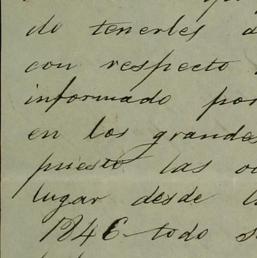 de tenerles a
con respecto
informado por
en los grandes
puesto las oc
lugar desde l
1846 todo s